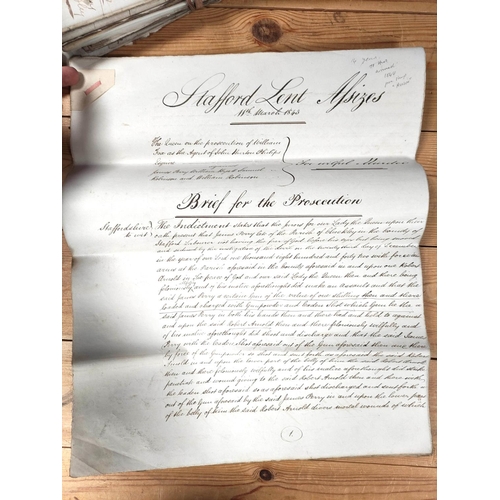 Stafford Lent Assizes
11th March 1843
The Queen on the prosecution of William
Fox as the Agent of John Burton Philips
Esquire
James Perry William Hyatt Samuel
Robinson and William Robinson
For wilful Murder
Brief for the Prosecution
Staffordshire The Indictment states that the jurors for our Lady the Queen upon their
to wit oath present that James Perry late of the Parish of Checkley in the County of
Stafford Labourer not having the fear of God before his eyes but being moved
and seduced by the instigation of the devil on the twenty third day of December
in the year of our Lord one thousand eight hundred and forty two with force and
arms at the Parish aforesaid in the County aforesaid in and upon one Robert
Arnold in the peace of God and our said Lady the Queen then and there being
feloniously and of his malice aforethought did make an assault and that the
said James Perry a certain Gun of the value of one shilling then and there
loaded and charged with Gunpowder and leaden Shot which Gun he the
said James Perry in both his hands then and there had and held to against
and upon the said Robert Arnold then and there feloniously wilfully and
of his malice aforethought did shoot and discharge and that the said James
Perry with the leaden Shot aforesaid out of the Gun aforesaid then and there
by force of the Gunpowder so shot and sent forth as aforesaid the said Robert
Arnold in and upon the lower part of the belly of him the said Robert Arnold
then and there feloniously wilfully and of his malice aforethought did strike
penetrate and wound giving to the said Robert Arnold then and there with
the leaden Shot aforesaid so as aforesaid shot discharged and sent forth
out of the Gun aforesaid by the said James Perry in and upon the lower part
of the belly of him the said Robert Arnold divers mortal wounds of which
1